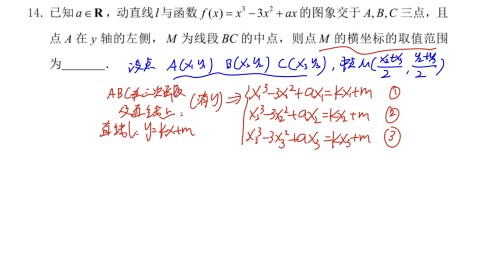 14. 已知 a∈R，动直线 l 与函数 f(x)=x³−3x²+ax 的图象交于 A, B, C 三点，且
点 A 在 y 轴的左侧，M 为线段 BC 的中点，则点 M 的横坐标的取值范围
为______．
设点 A(x₁y₁) B(x₂y₂) C(x₃y₃)，中点M(x₂+x₃/2, y₂+y₃/2)
直线上：
直线l: y=kx+m
x₁³−3x₁²+ax₁=kx₁+m ①
x₂³−3x₂²+ax₂=kx₂+m ②
x₃³−3x₃²+ax₃=kx₃+m ③